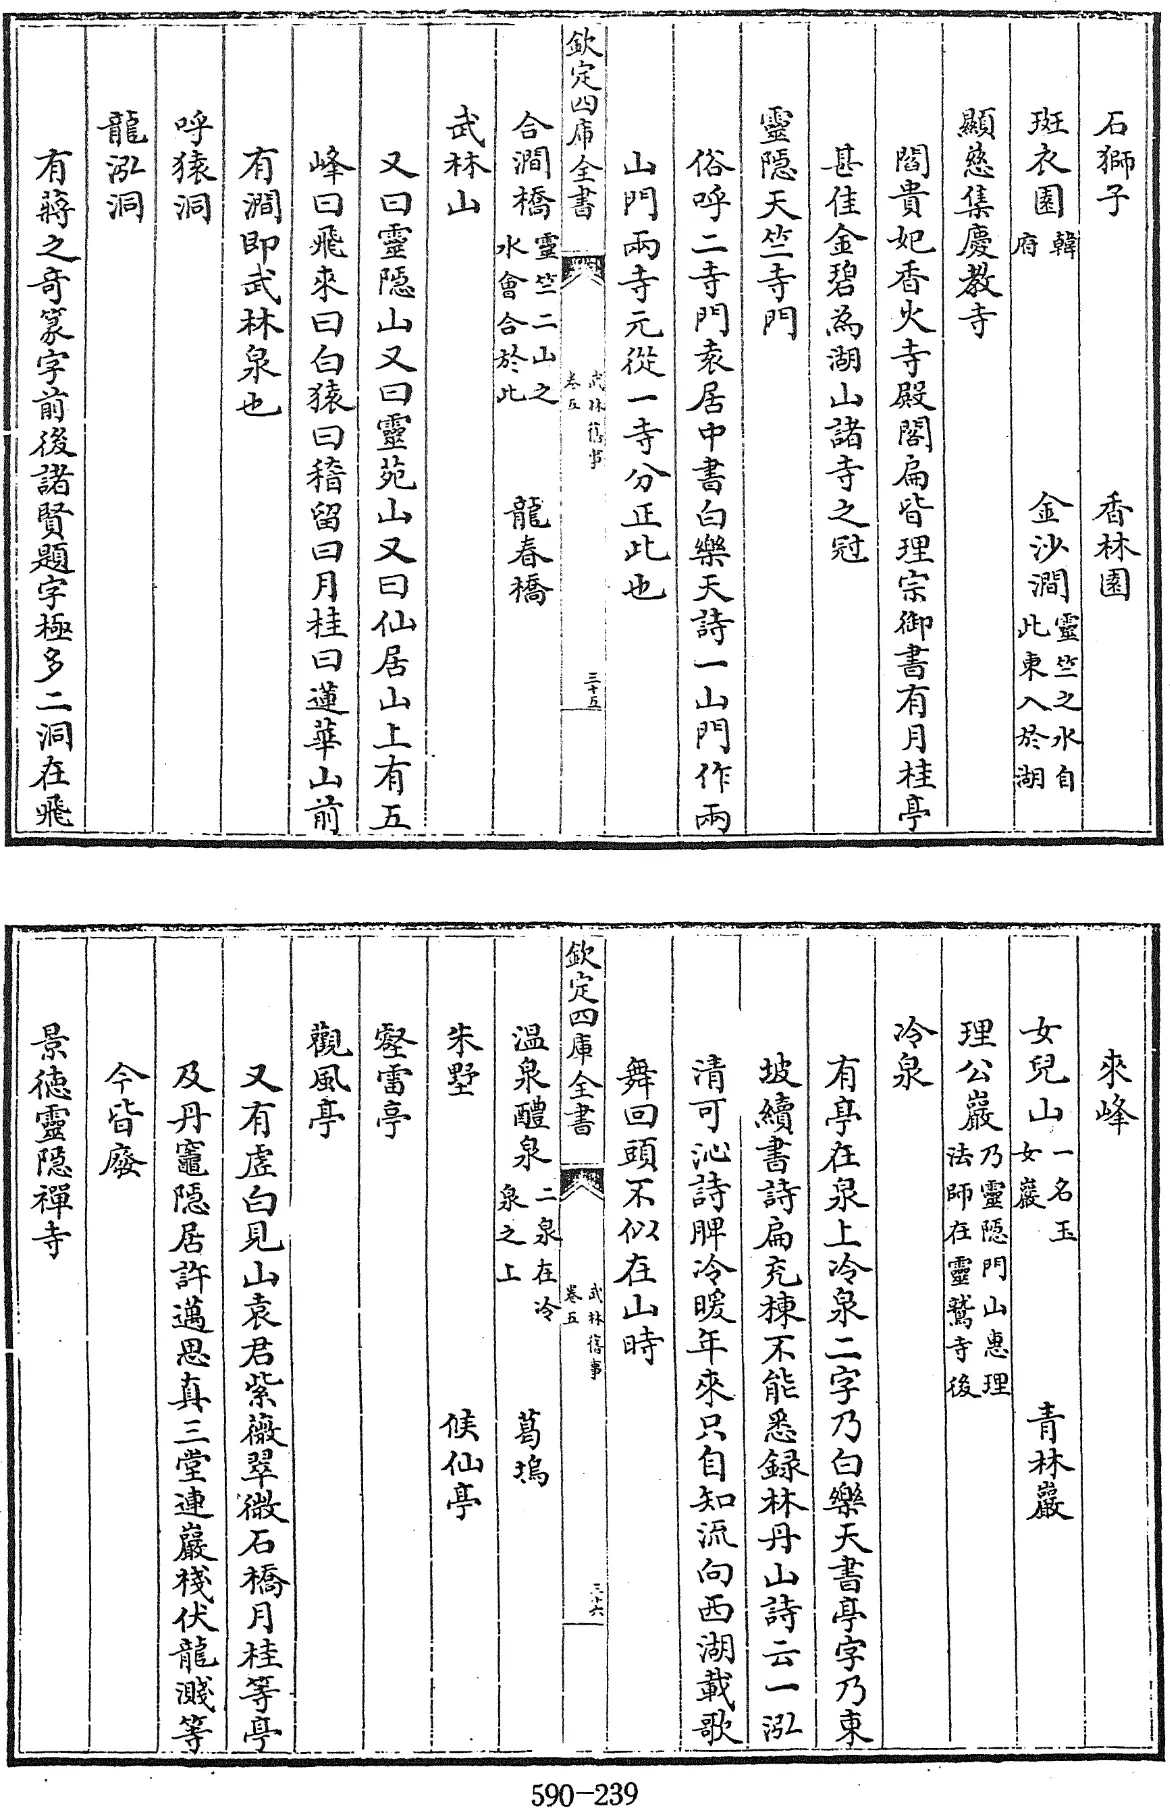 石獅子　香林園
斑衣園韓府　金沙澗靈竺之水自此東入於湖
顯慈集慶教寺
閻貴妃香火寺殿閣扁皆理宗御書有月桂亭
甚佳金碧為湖山諸寺之冠
靈隠天竺寺門
俗呼二寺門袁居中書白樂天詩一山門作兩
山門兩寺元從一寺分正此也
欽定四庫全書　武林舊事卷五　三十五
合澗橋靈竺二山之水會合於此　龍春橋
武林山
又曰靈隠山又曰靈苑山又曰仙居山上有五
峰曰飛來曰白猿曰稽留曰月桂曰蓮華山前
有澗即武林泉也
呼猿洞
龍泓洞
有蔣之奇篆字前後諸賢題字極多二洞在飛
來峰
女兒山一名玉女巖　青林巖
理公巖乃靈隠門山惠理法師在靈鷲寺後
冷泉
有亭在泉上冷泉二字乃白樂天書亭字乃東
坡續書詩扁充棟不能悉録林丹山詩云一泓
清可沁詩脾冷暖年來只自知流向西湖載歌
舞回頭不似在山時
欽定四庫全書　武林舊事卷五　三十六
温泉醴泉二泉在冷泉之上　葛塢
朱墅　候仙亭
壑雷亭
觀風亭
又有虚白見山袁君紫薇翠微石橋月桂等亭
及丹竈隠居許邁思真三堂連巖棧伏龍濺等
今皆廢
景德靈隠禪寺
590-239